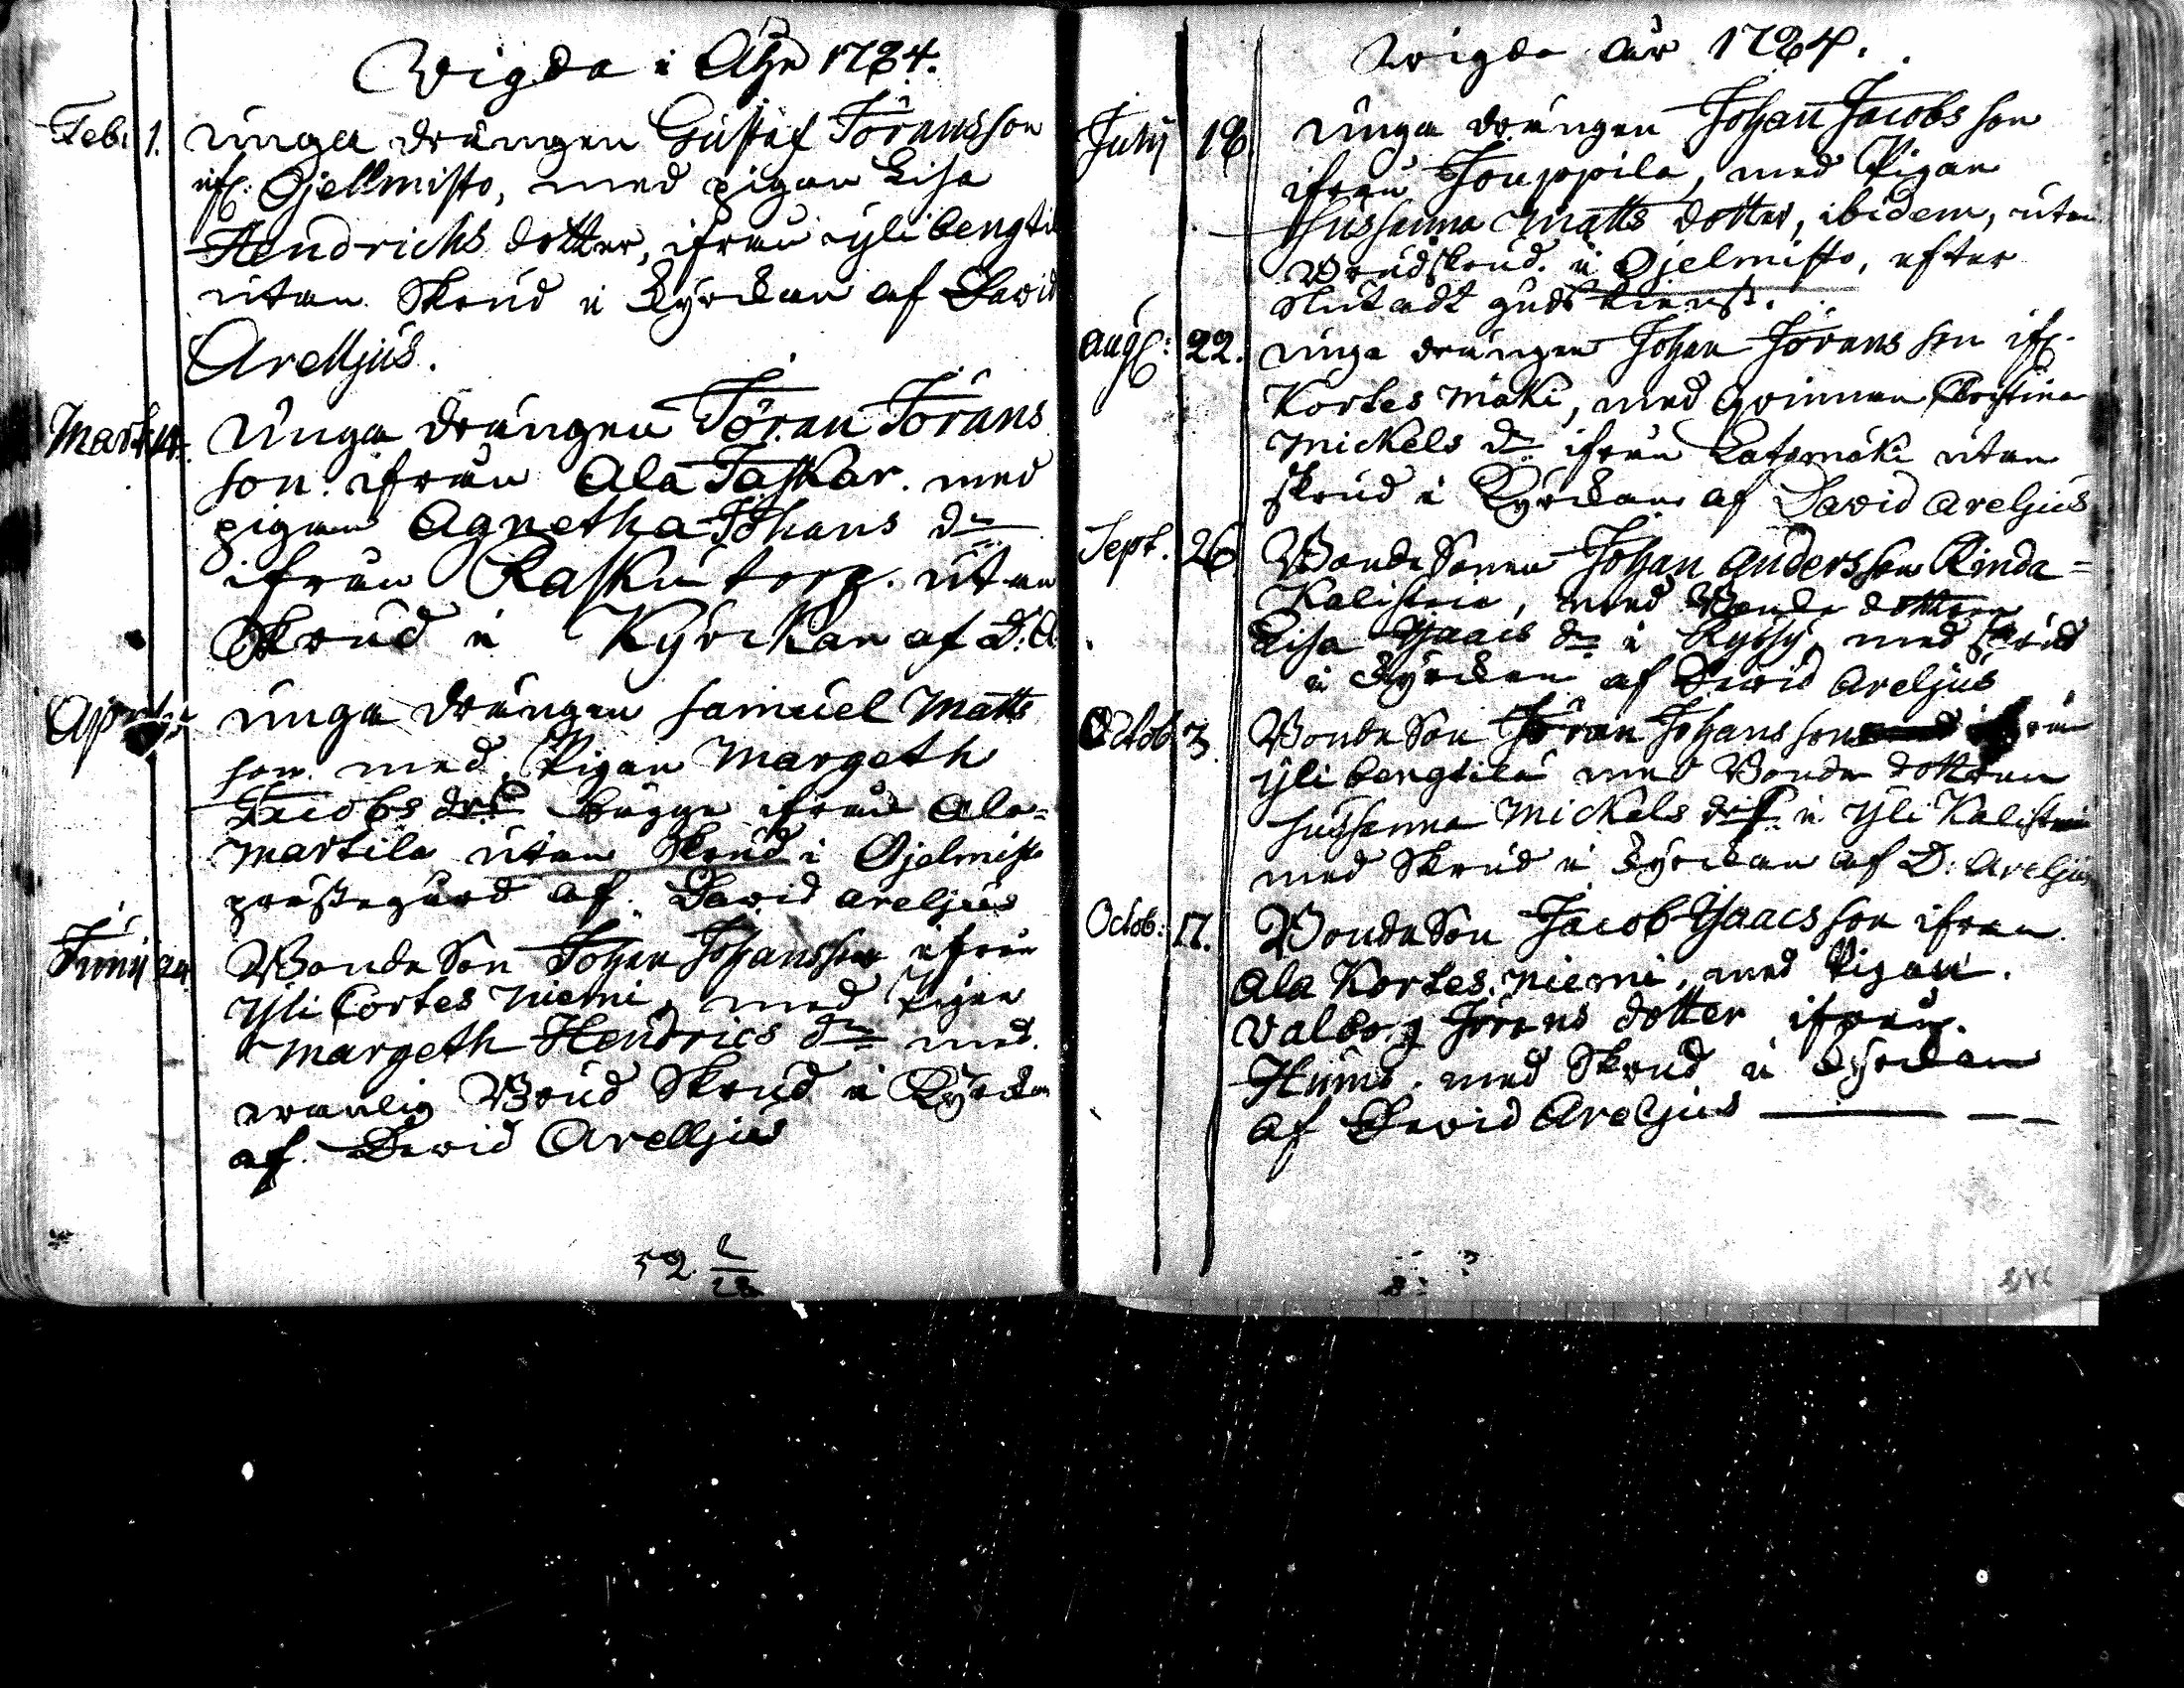 Wigda i Åhr 1784.
Feb: 1. unga drängen Gustaf Jöransson
ifr: Gjellmisto, med pigan Lisa
Hendrichs dotter, ifrån ylibengtil
utan Skrud i Kyrckan af David
Arelljus.
Mart: 14. Unga drängen Jöran Jörans
son. ifrån Ala Taskar. med
pigan Agnetha Johans dr
ifrån Rasku torp. utan
Skrud i Kyrckan af D. A
April unga drängen Samuel Matts
son. med Pigan Margeth
Jacobs dr bägge ifrån Ala=
Martila utan Skrud i Gjelmisto
prästegård af. David Areljus
Junij 24 Bonde Son Johan Johansson ifrån
Yli Cortes Niemi, med Pigan
Margeth Hendrics dr med
wanlig Brud Skrud i Kyrckan
af. David Arelljus
52
Wigda år 1784.
July 18 unga drängen Johan Jacobs son
ifrån Jouppila, med Pigan
Sussanna Matts dotter, ibidem, utan
Brudskrud. i Gjelmisto, efter
Slutadt gudstienst.
aug: 22. unga drängen Johan Jörans son ifr:
Kortes Mäki, med Qvinnan Christina
Mickels dr ifrån Latomäki utan
skrud i Kyrckan af David Areljus
Sept. 26 Bonde Sonen Johan Andersson Rinda=
Kalistaia, med Bonde dottren
Lisa Isaacs dr i Ryssy, med skrud
i Kyrckan af David Areljus
Octob 3 Bonde Son Jöran Johans son ifrån
Yli bengtila med Bonde dottren
Sussanna Mickels dr i Yli Kalistaia
med Skrud i Kyrckan af D: Areljus
Octob: 17. Bonde Son Jacob Isaacs son ifrån
Ala Kortes Niemi, med Pigan.
Valborg Jörans dotter ifrån.
Humb. med Skrud i Kyrckan
af David Areljus